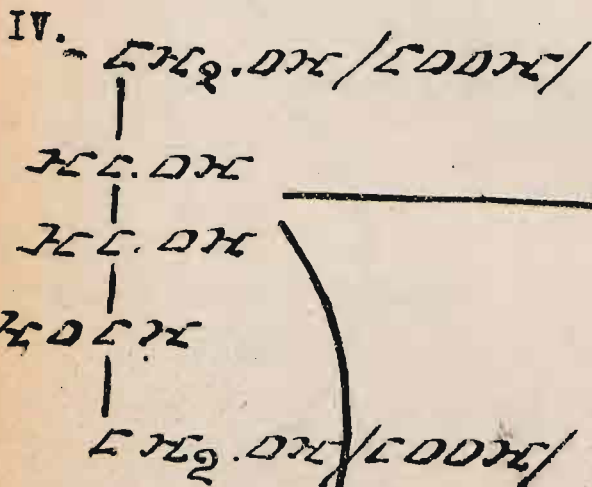 IV.
CH₂.OH/COOH/
HC.OH
HC.OH
HOCH
CH₂.OH/COOH/